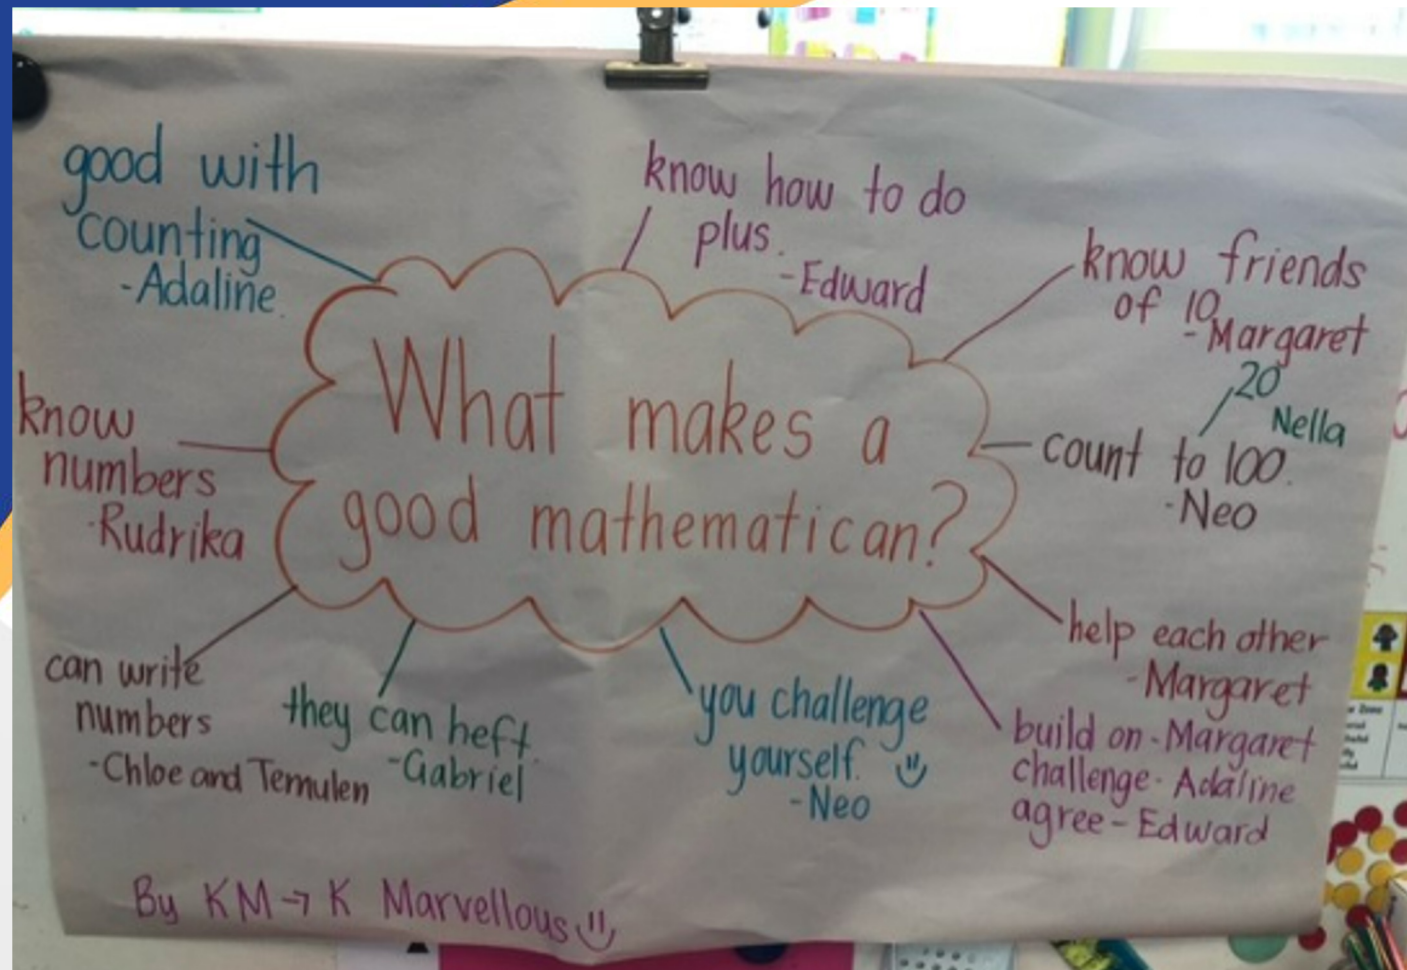 What makes a
good mathematican?
good with
counting
-Adaline.
know how to do
plus.
-Edward
know friends
of 10
-Margaret
20
Nella
count to 100.
-Neo
help each other
-Margaret
build on - Margaret
challenge - Adaline
agree - Edward
you challenge
yourself.
-Neo
they can heft.
-Gabriel
can write
numbers
-Chloe and Temulen
know
numbers
-Rudrika
By KM → K Marvellous